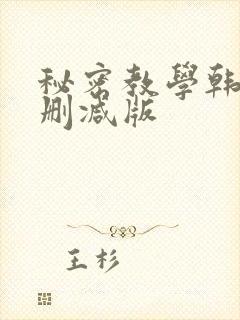 秘密教學韩
删减版
王杉